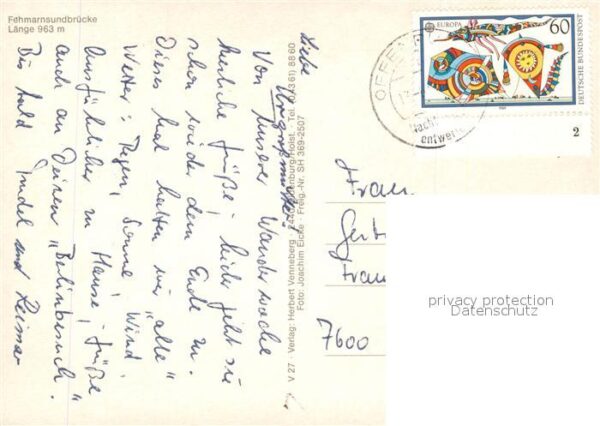 Fehmarnsundbrücke
Länge 963 m
Liebe
Von unserer Wanderwoche
herzliche Grüße; leider geht sie
schon wieder dem Ende zu.
Dieses Mal hatten wir „alle“
Wetter: Regen, Sonne, Wind.
Ausführlicher zu Hause; Grüße
auch an Deinen „Berlinbesuch“.
Bis bald und Reimar
V 27 · Verlag: Herbert Venneberg · 2440 Oldenburg/Holst. · Tel. (04361) 8860
Foto: Joachim Eicke · Freig.-Nr. SH 369-2507
EUROPA
60
DEUTSCHE BUNDESPOST
1989
2
OFFEN
entwer
Frau
Gert
Frau
7600
privacy protection
Datenschutz